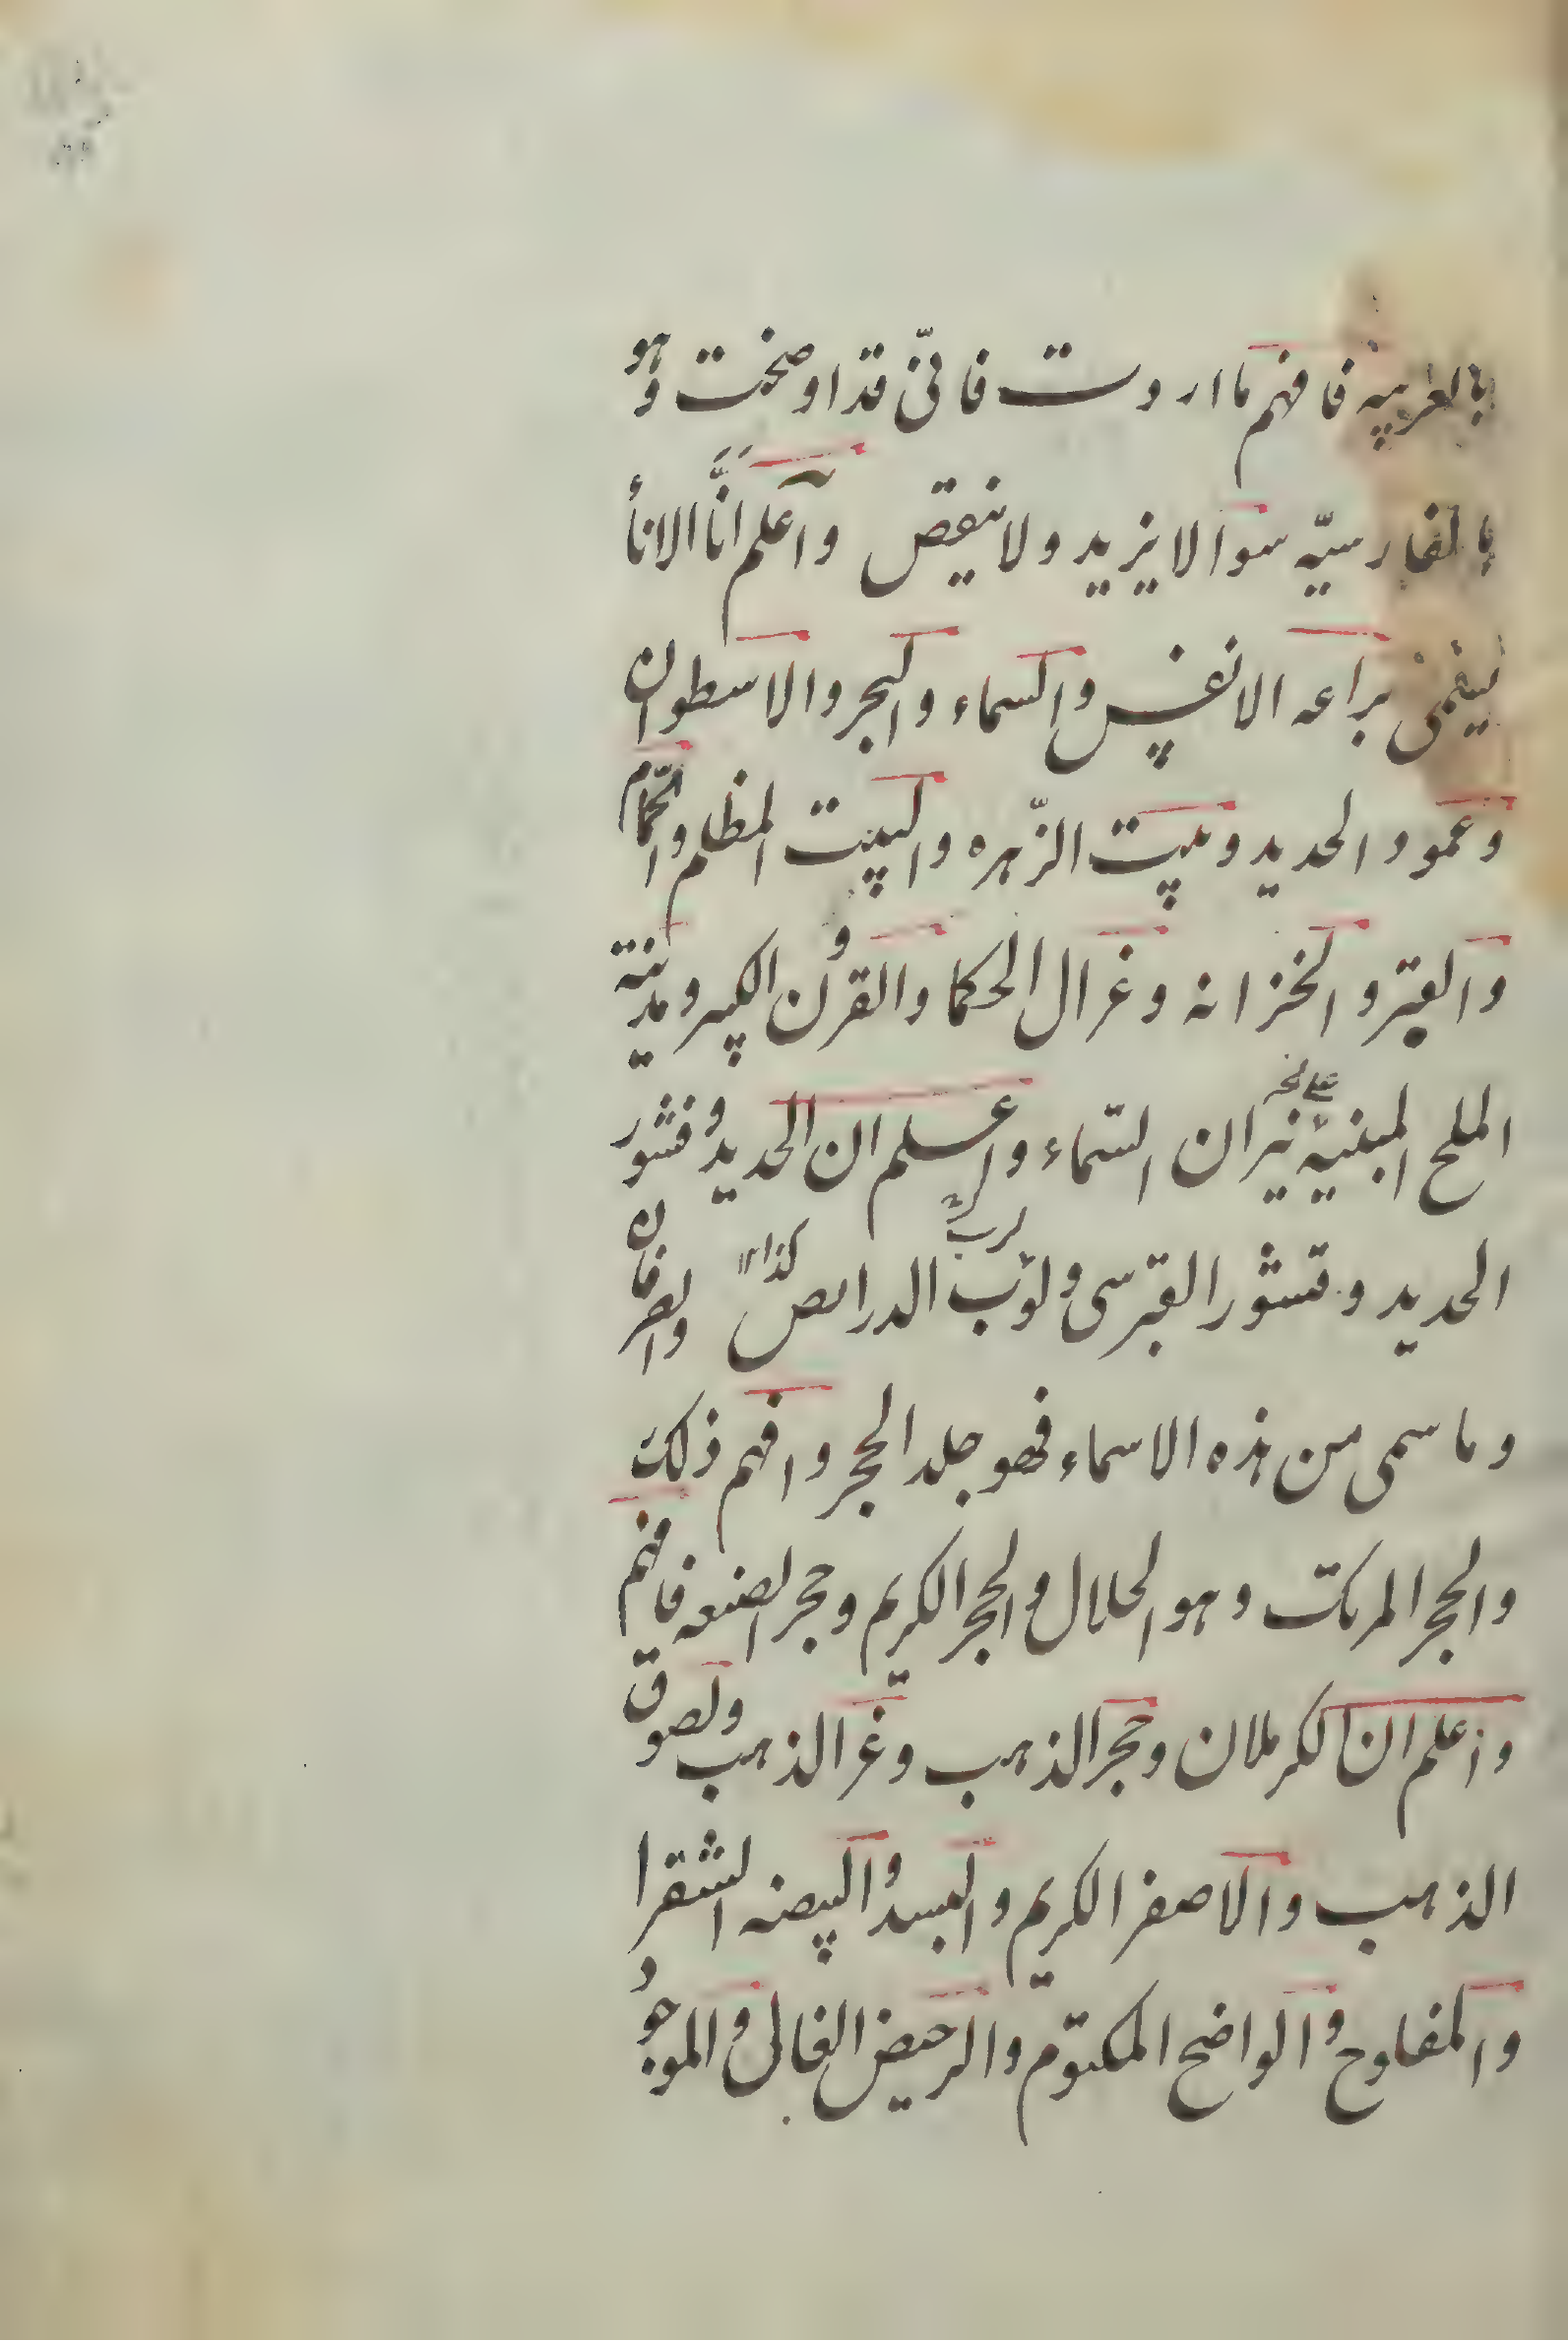 بالعربيه فافهم ما اردت فانّى قد اوضحت وهو
بالفارسيّه سوا لا يزيد ولا ينقص واعلم انّ الانا
براعه الانفس والسماء والبحر والاسطوان
وعمود الحديد وبيت الزّهره والبيت المظلم والحمّام
والقبر والخزانه وغزال الحكما والقرن الكبير ومدينة
الملح المبنية نيران السّماء واعلم ان الحديد وقشور
الحديد وقشور القبرسى وثوب الدرابص كذا والصرفان
وما سمى من هذه الاسماء فهو جلد الحجر وافهم ذلك
والحجر المركب وهو الحلال والحجر الكريم وحجر الصنعه فافهم
واعلم ان الكرملان وحجر الذهب وغرا الذهب ولصوق
الذهب والاصفر الكريم والبسد والبيضه الشقرا
والمفلوح والواضح المكتوم والرخيص الغالى والموجود